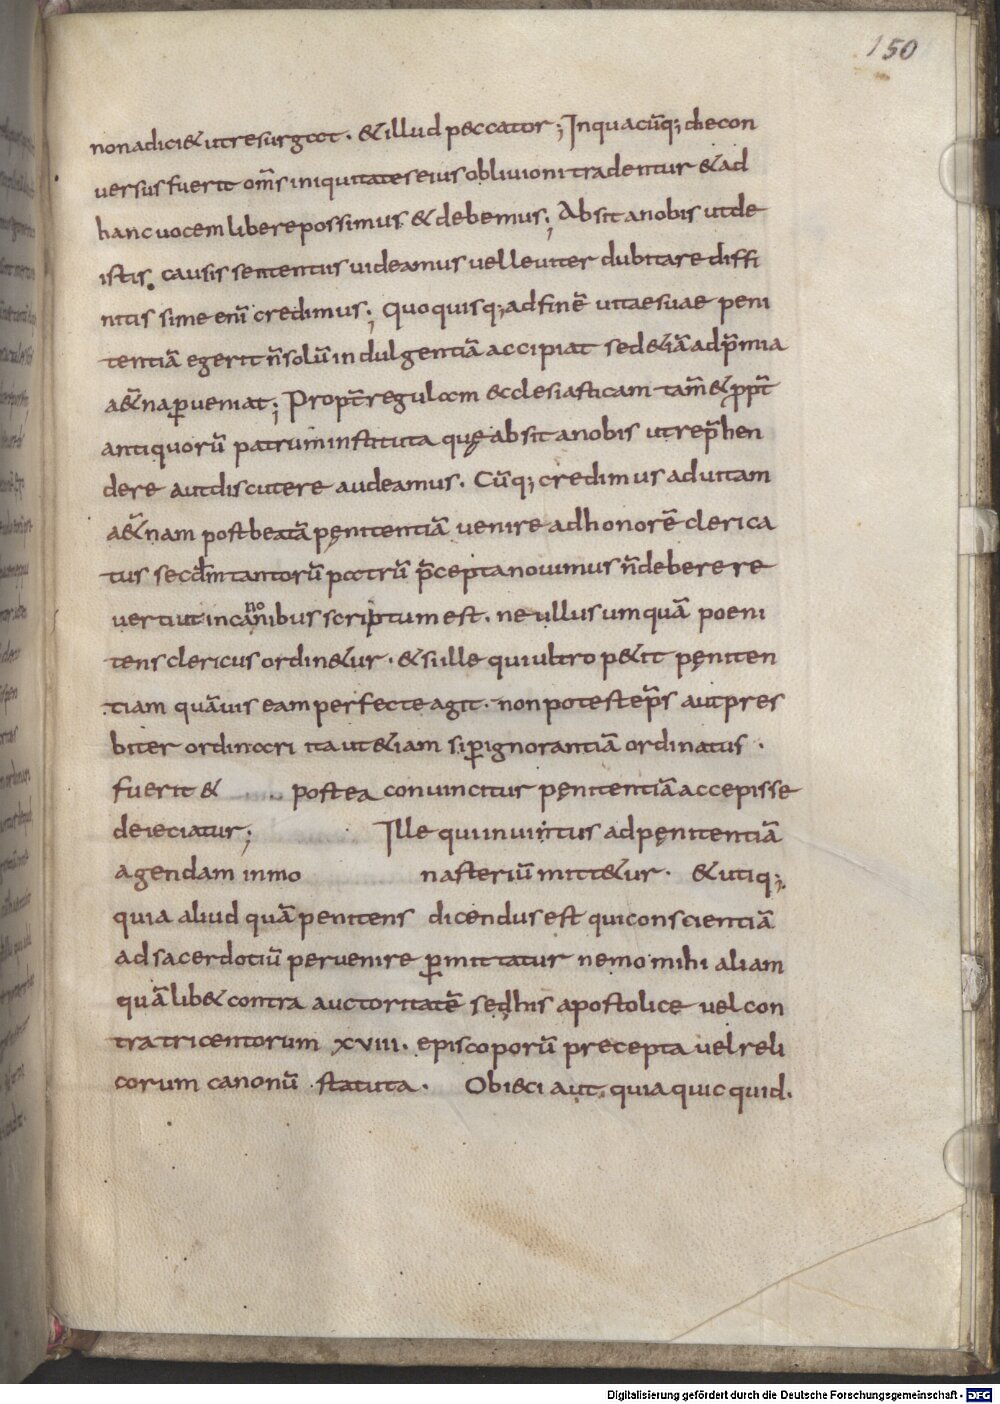 150
non adiciet ut resurgat. et illud peccator; In quacūq; die con
versus fuerit om̄s iniquitates eius oblivioni tradentur et ad
hanc vocem libere possimus et debemus; Absit a nobis ut de
istis causis sententiis videamus vel leviter dubitare diffi
nitis sime enī credimus; Quo quisq; ad finē vitae suae peni
tentiā egerit n̄ solū indulgentiā accipiat sed etiā ad p̄mia
aet̄na perveniat; Propt̄ regulam ecclesiasticam tam̄ et ppt̄
antiquorū patrum instituta quę absit a nobis ut rep̄hen
dere aut discutere audeamus. Cūq; credimus ad vitam
aet̄nam post beatā pęnitentiā venire ad honorē clerica
tus secd̄m tantorū patrū p̄cepta novimus n̄ debere re
verti ut in canonibus scriptum est. ne ullus umquā poeni
tens clericus ordinetur. et si ille qui ultro petit pęniten
tiam quāvis eam perfecte agit. non potest ep̄s aut pres
biter ordinari ita ut etiam si p̱ ignorantiā ordinatus.
fuerit et postea convincitur pęnitentiā accepisse
deieciatur; Ille qui invintus ad pęnitentiā
agendam in mo nasteriū mittetur. et utiq;
quia aliud quā penitens dicendus est qui conscientiā
ad sacerdotiū pervenire p̱mittatur nemo mihi aliam
quālibet contra auctoritatē sedhis apostolice vel con
tra tricentorum xviii. episcoporū precepta vel reli
corum canonū statuta. Obieci aut̄ quia quicquid.
Digitalisierung gefördert durch die Deutsche Forschungsgemeinschaft - DFG